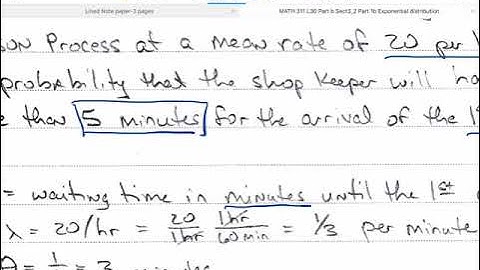 Lined Note paper-3 pages
MATH 311 L30 Part b Sect3_2 Part 1b Exponential distribution
Process at a mean rate of 20 per
probability that the shop keeper will
than 5 minutes for the arrival of the
= waiting time in minutes until the 1st
λ = 20/hr = 20/1hr 1hr/60min = 1/3 per minute
= 1/ = 3